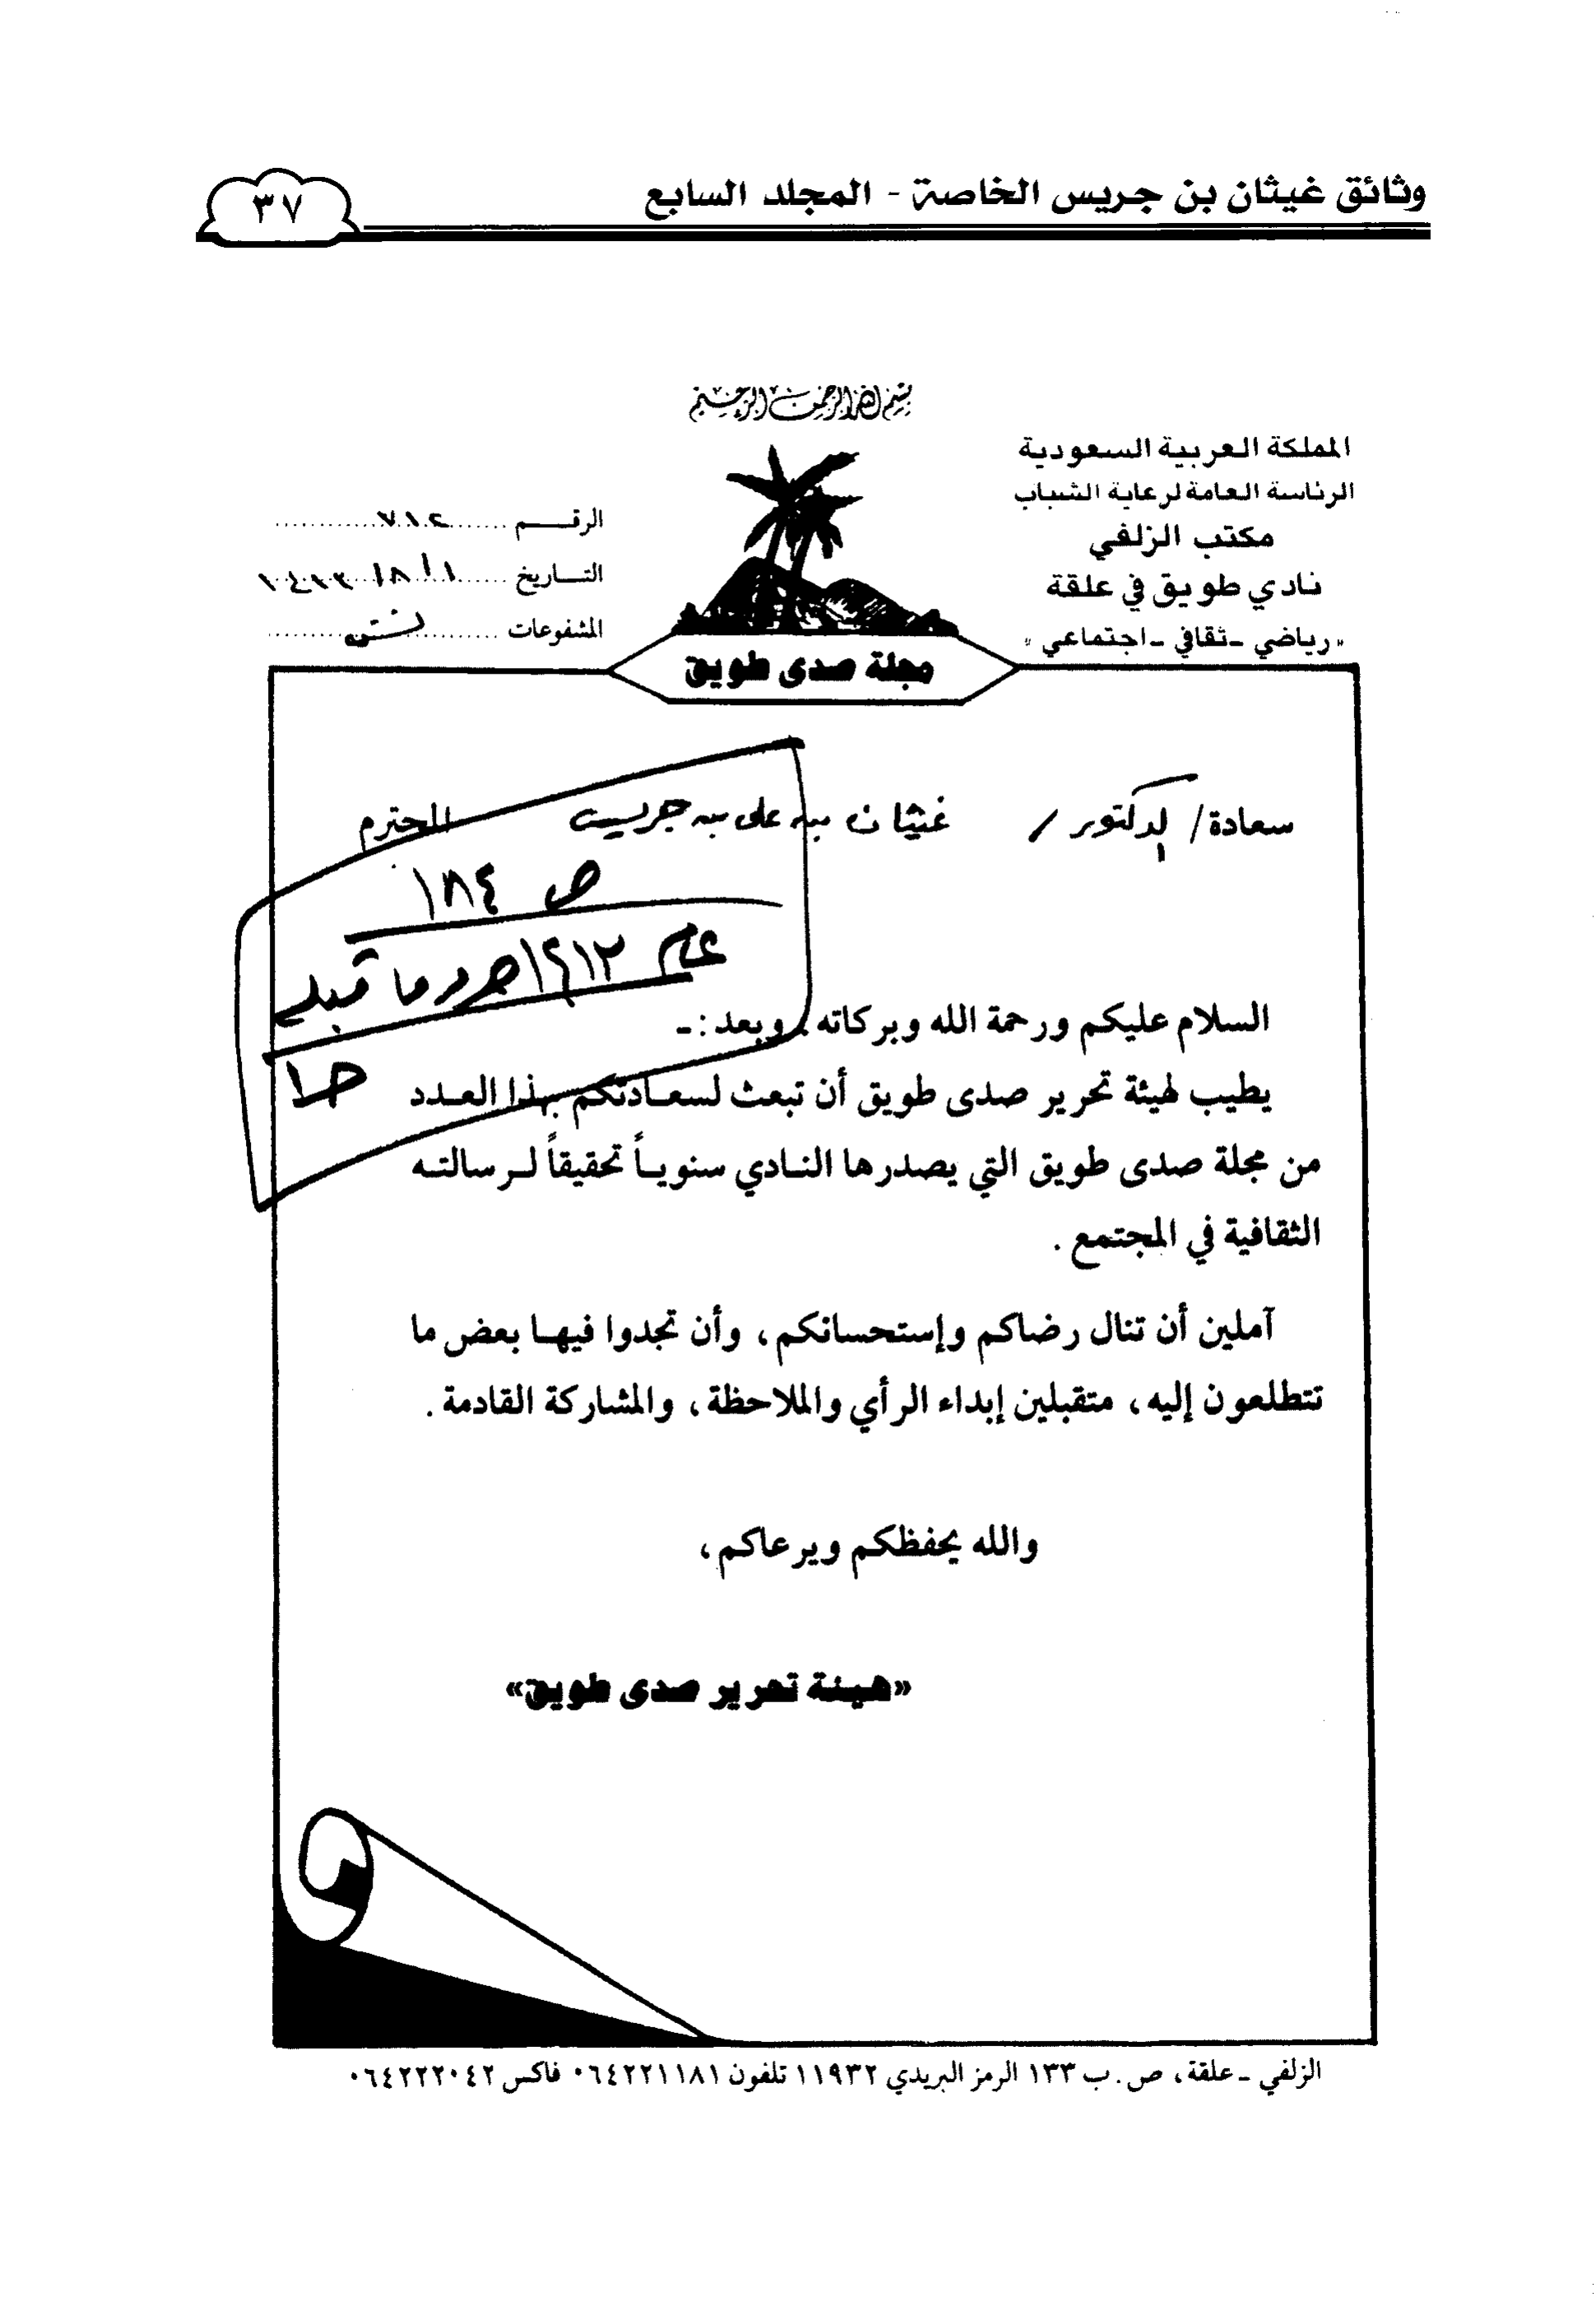 وثائق غيثان بن جريس الخاصة - المجلد السابع
٣٧
بسم الله الرحمن الرحيم
المملكة العربية السعودية
الرئاسة العامة لرعاية الشباب
مكتب الزلفي
نادي طويق في علقة
«رياضي - ثقافي - اجتماعي»
الرقــم ٧١٢
التـاريخ ١ / ٨ / ١٤١٣
المشفوعات
مجلة صدى طويق
سعادة/ الدكتور / غيثان بن علي بن جريس المحترم
ص ١٨٤
عام ١٤١٢هـ وما قبله
السلام عليكم ورحمة الله وبركاته، وبعد :-
يطيب لهيئة تحرير صدى طويق أن تبعث لسعـادتكم بهذا العـدد
من مجلة صدى طويق التي يصدرها النـادي سنويـاً تحقيقاً لـرسالتـه
الثقافية في المجتمع .
آملين أن تنال رضاكم وإستحسانكم، وأن تجدوا فيهـا بعض ما
تتطلعون إليه، متقبلين إبداء الرأي والملاحظة، والمشاركة القادمة .
والله يحفظكم ويرعاكم،
«هيئة تحرير صدى طويق»
الزلفي - علقة، ص. ب ١٣٣ الرمز البريدي ١١٩٣٢ تلفون ٠٦٤٢٢١١٨١ فاكس ٠٦٤٢٢٢٠٤٢